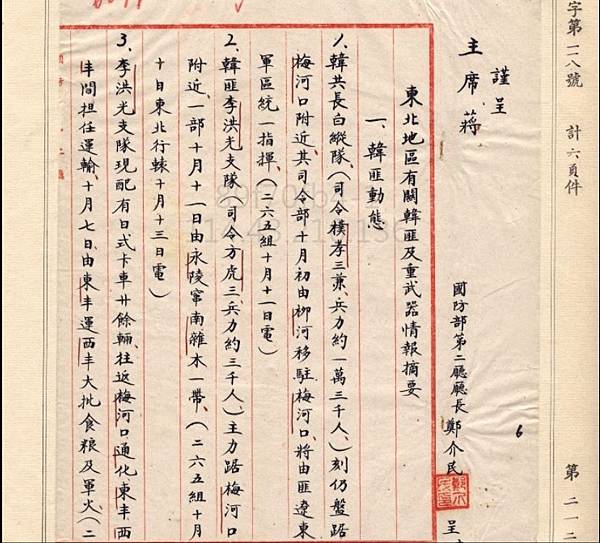 字第一一八號　計六頁件　第二一二
謹呈
主席　蔣
國防部第二廳廳長鄭介民
呈
6
東北地區有關韓匪及重武器情報摘要
一、韓匪動態
1、韓共長白縱隊、（司令樸孝三兼、兵力約一萬三千人、）刻仍盤踞
梅河口附近、其司令部十月初由柳河移駐梅河口、將由匪遼東
軍區統一指揮、（二六五組十月十一日電）
2、韓匪李洪光支隊（司令方虎三、兵力約三千人、）主力踞梅河口
附近、一部十月十一日由永陵竄南雜木一帶、（二六五組十月
十日東北行轅十月十三日電）
3、李洪光支隊現配有日式卡車廿餘輛、往返梅河口通化東丰西
丰間担任運輸、十月七日、由東丰運西丰大批食粮及軍火、（二